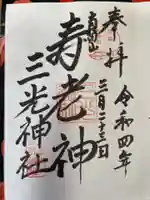 奉拝
令和四年
二月二十三日
寿老神
三光神社